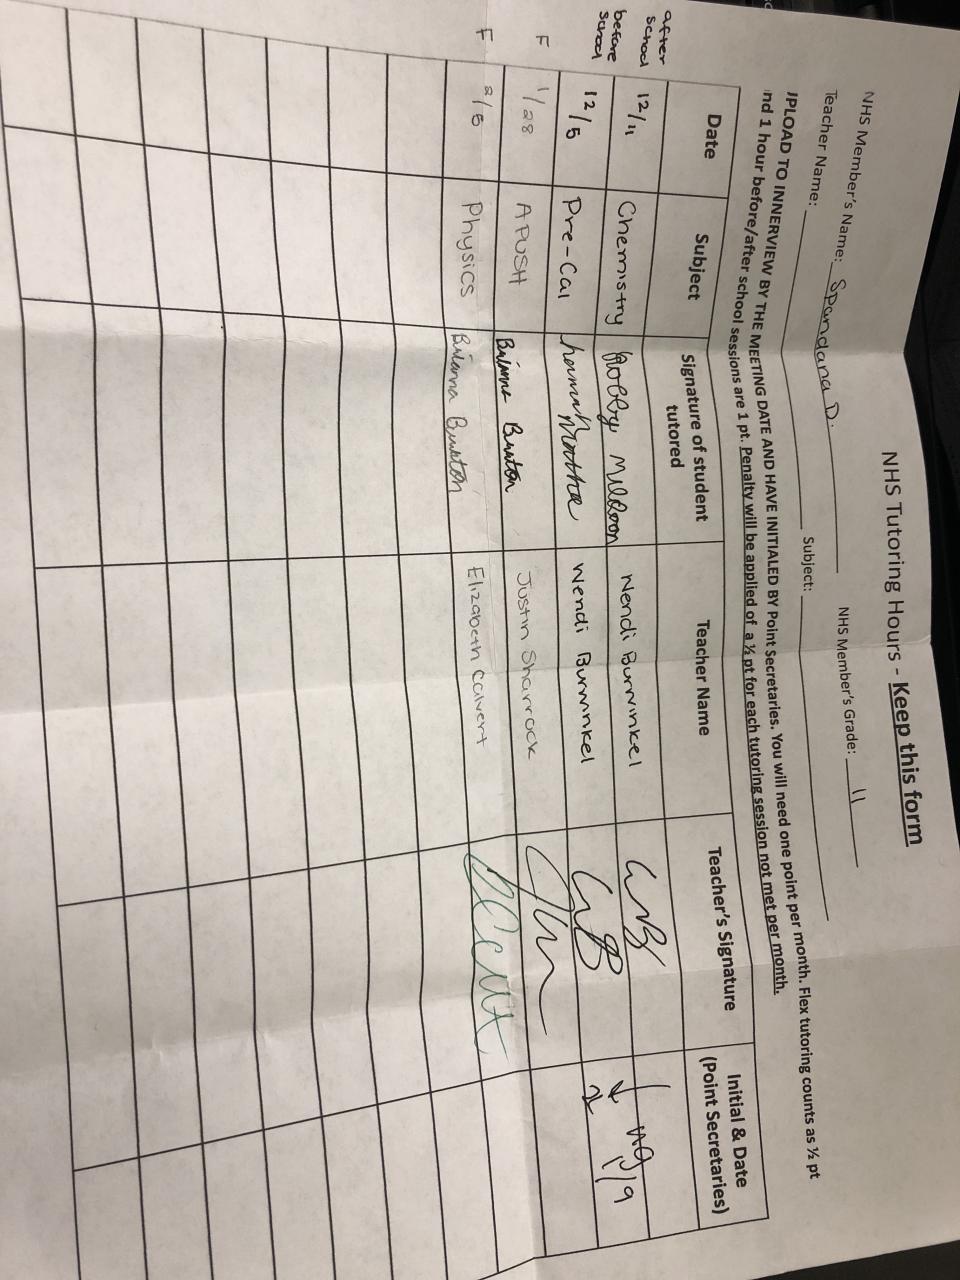 NHS Tutoring Hours - Keep this form
NHS Member's Name: Spandana D. NHS Member's Grade: 11
Teacher Name: Subject:
UPLOAD TO INNERVIEW BY THE MEETING DATE AND HAVE INITIALED BY Point Secretaries. You will need one point per month. Flex tutoring counts as ½ pt
and 1 hour before/after school sessions are 1 pt. Penalty will be applied of a ½ pt for each tutoring session not met per month.
Date Subject Signature of student tutored Teacher Name Teacher's Signature Initial & Date (Point Secretaries)
after school 12/11 Chemistry Wendi Burwinkel WB
before school 12/5 Pre-Cal Wendi Burwinkel WB
F 1/28 APUSH Brianna Burston Justin Sharrock
F 2/5 Physics Brianna Burston Elizabeth Calvert